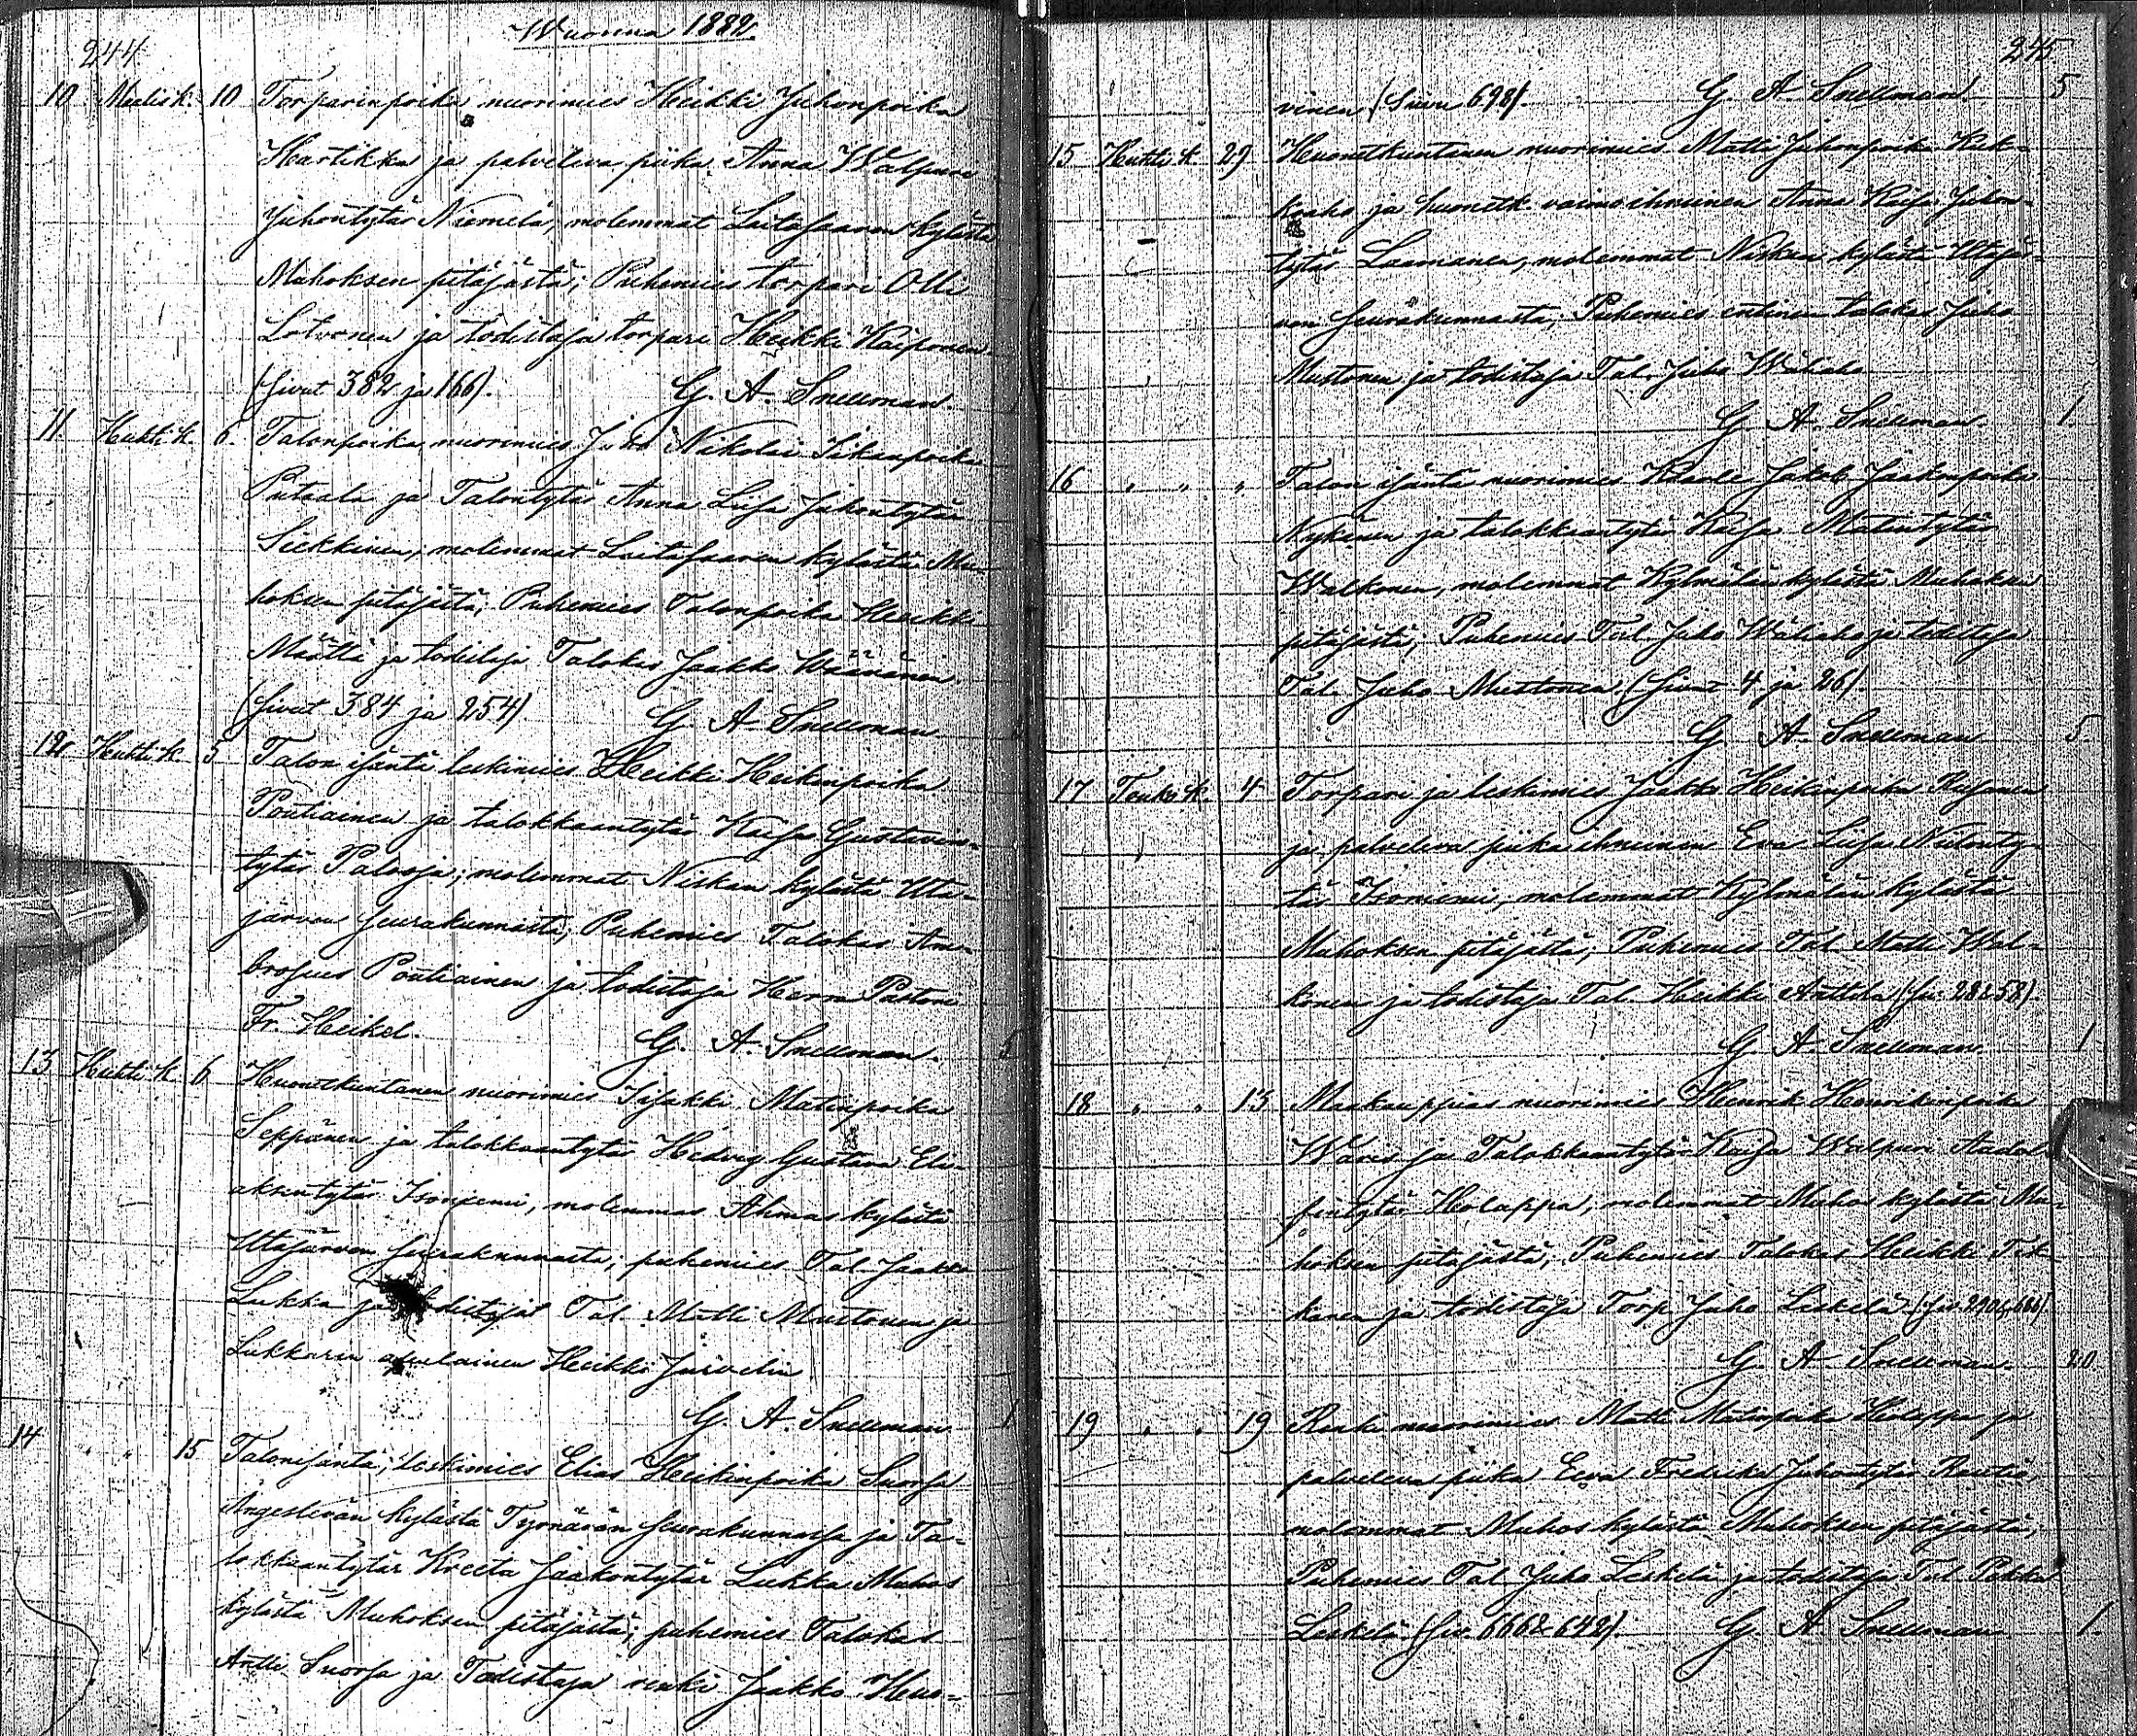 Wuonna 1882.
244
10 Maalis k. 10 Torparinpoika nuorimies Heikki Juhonpoika
Hartikka ja palveleva piika Anna Walpuri
Juhontytär Niemelä, molemmat Laitasaaren kylästä
Muhoksen pitäjästä; Puhemies torpari Olli
Lotvonen ja todistaja torpari Heikki Kaiponen.
(Sivut 382 ja 166). G. A. Snellman.
11. Huhti k. 6. Talonpoika nuorimies Juho Nikolai
Putaala ja Talontytär Anna Liisa Juhontytär
Siekkinen; molemmat Laitasaaren kylästä Mu-
hoksen pitäjästä; Puhemies Talonpoika Heikki
Määttä ja todistaja Talokas Jaakko Väänänen
(Sivut 384 ja 254). G. A. Snellman
12 Huhti k. 5 Talon isäntä leskimies Heikki Heikinpoika
Poutiainen ja talokkaantytär Kaisa Gustavin-
tytär Palooja; molemmat Niskan kylästä Uta-
järven seurakunnasta; Puhemies Talokas Am-
brosius Poutiainen ja todistaja Herra Pastori
Fr. Heikel. G. A. Snellman. 5
13 Huhti k. 6 Huonetkuntanen nuorimies Iisakki Matinpoika
Seppänen ja talokkaantytär Hedvig Gustava Eli-
aksentytär Isoniemi, molemmas Ahmas kylästä
Utajärven seurakunnasta; puhemies Tal. Jaakko
Lukka ja todistajat Tal. Matti Mustonen ja
Lukkarin apulainen Heikki Järvelin
G. A. Snellman 1
14 " " 15 Talonisäntä, leskimies Elias Heikinpoika Suorsa
Ängeslevän kylästä Tyrnävän seurakunnassa ja Ta-
lokkaantytär Kreeta Jaakontytär Lukka Muhos
kylästä Muhoksen pitäjästä; puhemies Talokas
Antti Suorsa ja Todistaja renki Jaakko Huo-
245
vinen (Sivu 698). G. A. Snellman. 5
15 Huhti k. 29 Huonetkuntanen nuorimies Matti Juhonpoika Kuk-
kaho ja huonetk. vaimoihminen Anna Kaisa Juhon-
tytär Laamanen, molemmat Niskan kylästä Utajär-
ven seurakunnasta; Puhemies entinen talokas Juho
Mustonen ja todistaja Tal. Juho Wäliaho
G. A. Snellman. 1.
16 " " " Talon isäntä nuorimies Kaarle Jakob Jaakonpoika
Nykänen ja talokkaantytär Kaisa Matintytär
Walkonen, molemmat Kylmälän kylästä Muhoksen
pitäjästä; Puhemies Tal. Juho Wäliaho ja todistaja
Tal. Juho Mustonen. (Sivut 4 ja 26).
G. A. Snellman 5
17 Touko k. 4 Torpari ja leskimies Jaakko Heikinpoika
ja palveleva piika ihminen Eva Liisa Niilonty-
tär Isoniemi, molemmat Kylmälän kylästä
Muhoksen pitäjästä; Puhemies Tal. Matti Wal-
konen ja todistaja Tal. Heikki Anttila (siv. 28 & 58).
G. A. Snellman. 1
18 " " 13 Maakauppias nuorimies Henrik Henrikinpoika
Waris ja Talokkaantytär Kaisa Walpuri Aadol-
fintytär Holappa, molemmat Muhos kylästä Mu-
hoksen pitäjästä; Puhemies Talokas Heikki
kanen ja todistaja Torp. Juho Leskelä.
G. A. Snellman. 20.
19 " " 19 Renki nuorimies Matti Matinpoika Holappa ja
palveleva piika Eeva Fredrika Juhontytär Rautio,
molemmat Muhos kylästä Muhoksen pitäjästä;
Puhemies Tal. Juho Leskelä ja todistaja Tal. Pekka
Leskelä (Siv. 666 & 642). G. A. Snellman. 1.